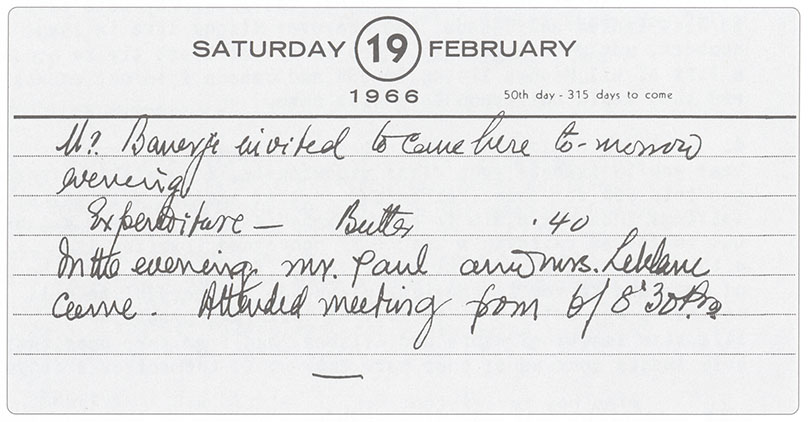 SATURDAY 19 FEBRUARY
1966
50th day - 315 days to come
Mr. Banerji invited to come here to-morrow
evening
Expenditure — Butter .40
In the evening mr. Paul and mrs. Leblanc
came. Attended meeting from 6/8'30 P.m.